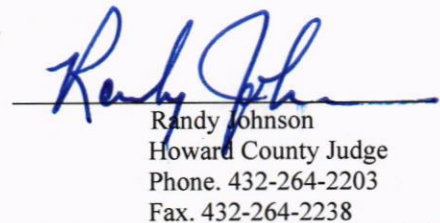 Randy Johnson
Randy Johnson
Howard County Judge
Phone. 432-264-2203
Fax. 432-264-2238